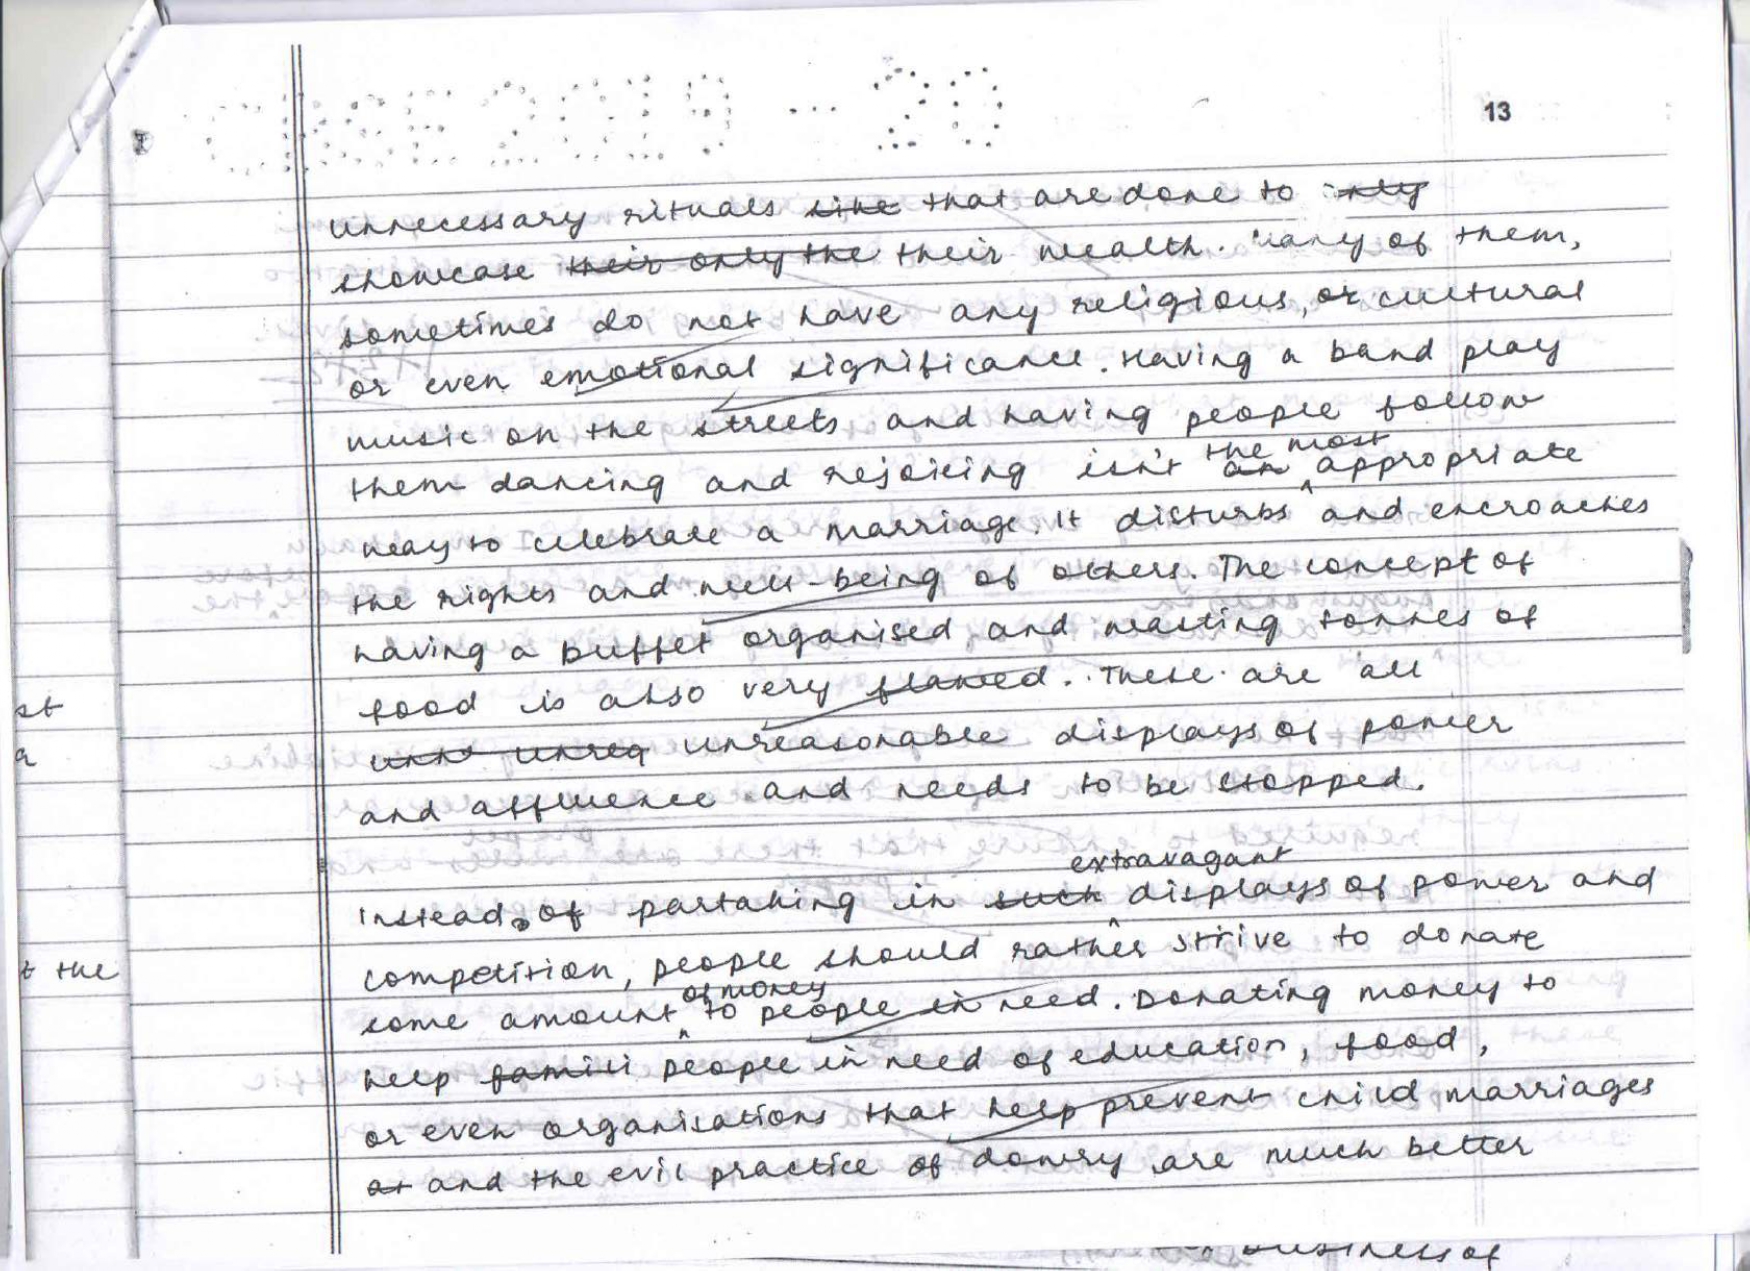 CBSE 2019 - 20
13
unnecessary rituals like that are done to only
showcase their only the their wealth. Many of them,
sometimes do not have any religious, or cultural
or even emotional significance. Having a band play
music on the streets and having people follow
them dancing and rejoicing isn't an the most appropriate
way to celebrate a marriage. It disturbs and encroaches
the rights and well-being of others. The concept of
having a buffet organised and wasting tonnes of
food is also very flawed. These are all
unne unrea unreasonable displays of power
and affluence and needs to be stopped.
Instead, of partaking in such extravagant displays of power and
competition, people should rather strive to donate
some amount of money to people in need. Donating money to
help famili people in need of education, food,
or even organisations that help prevent child marriages
at and the evil practice of dowry are much better
st
a
t the
business of